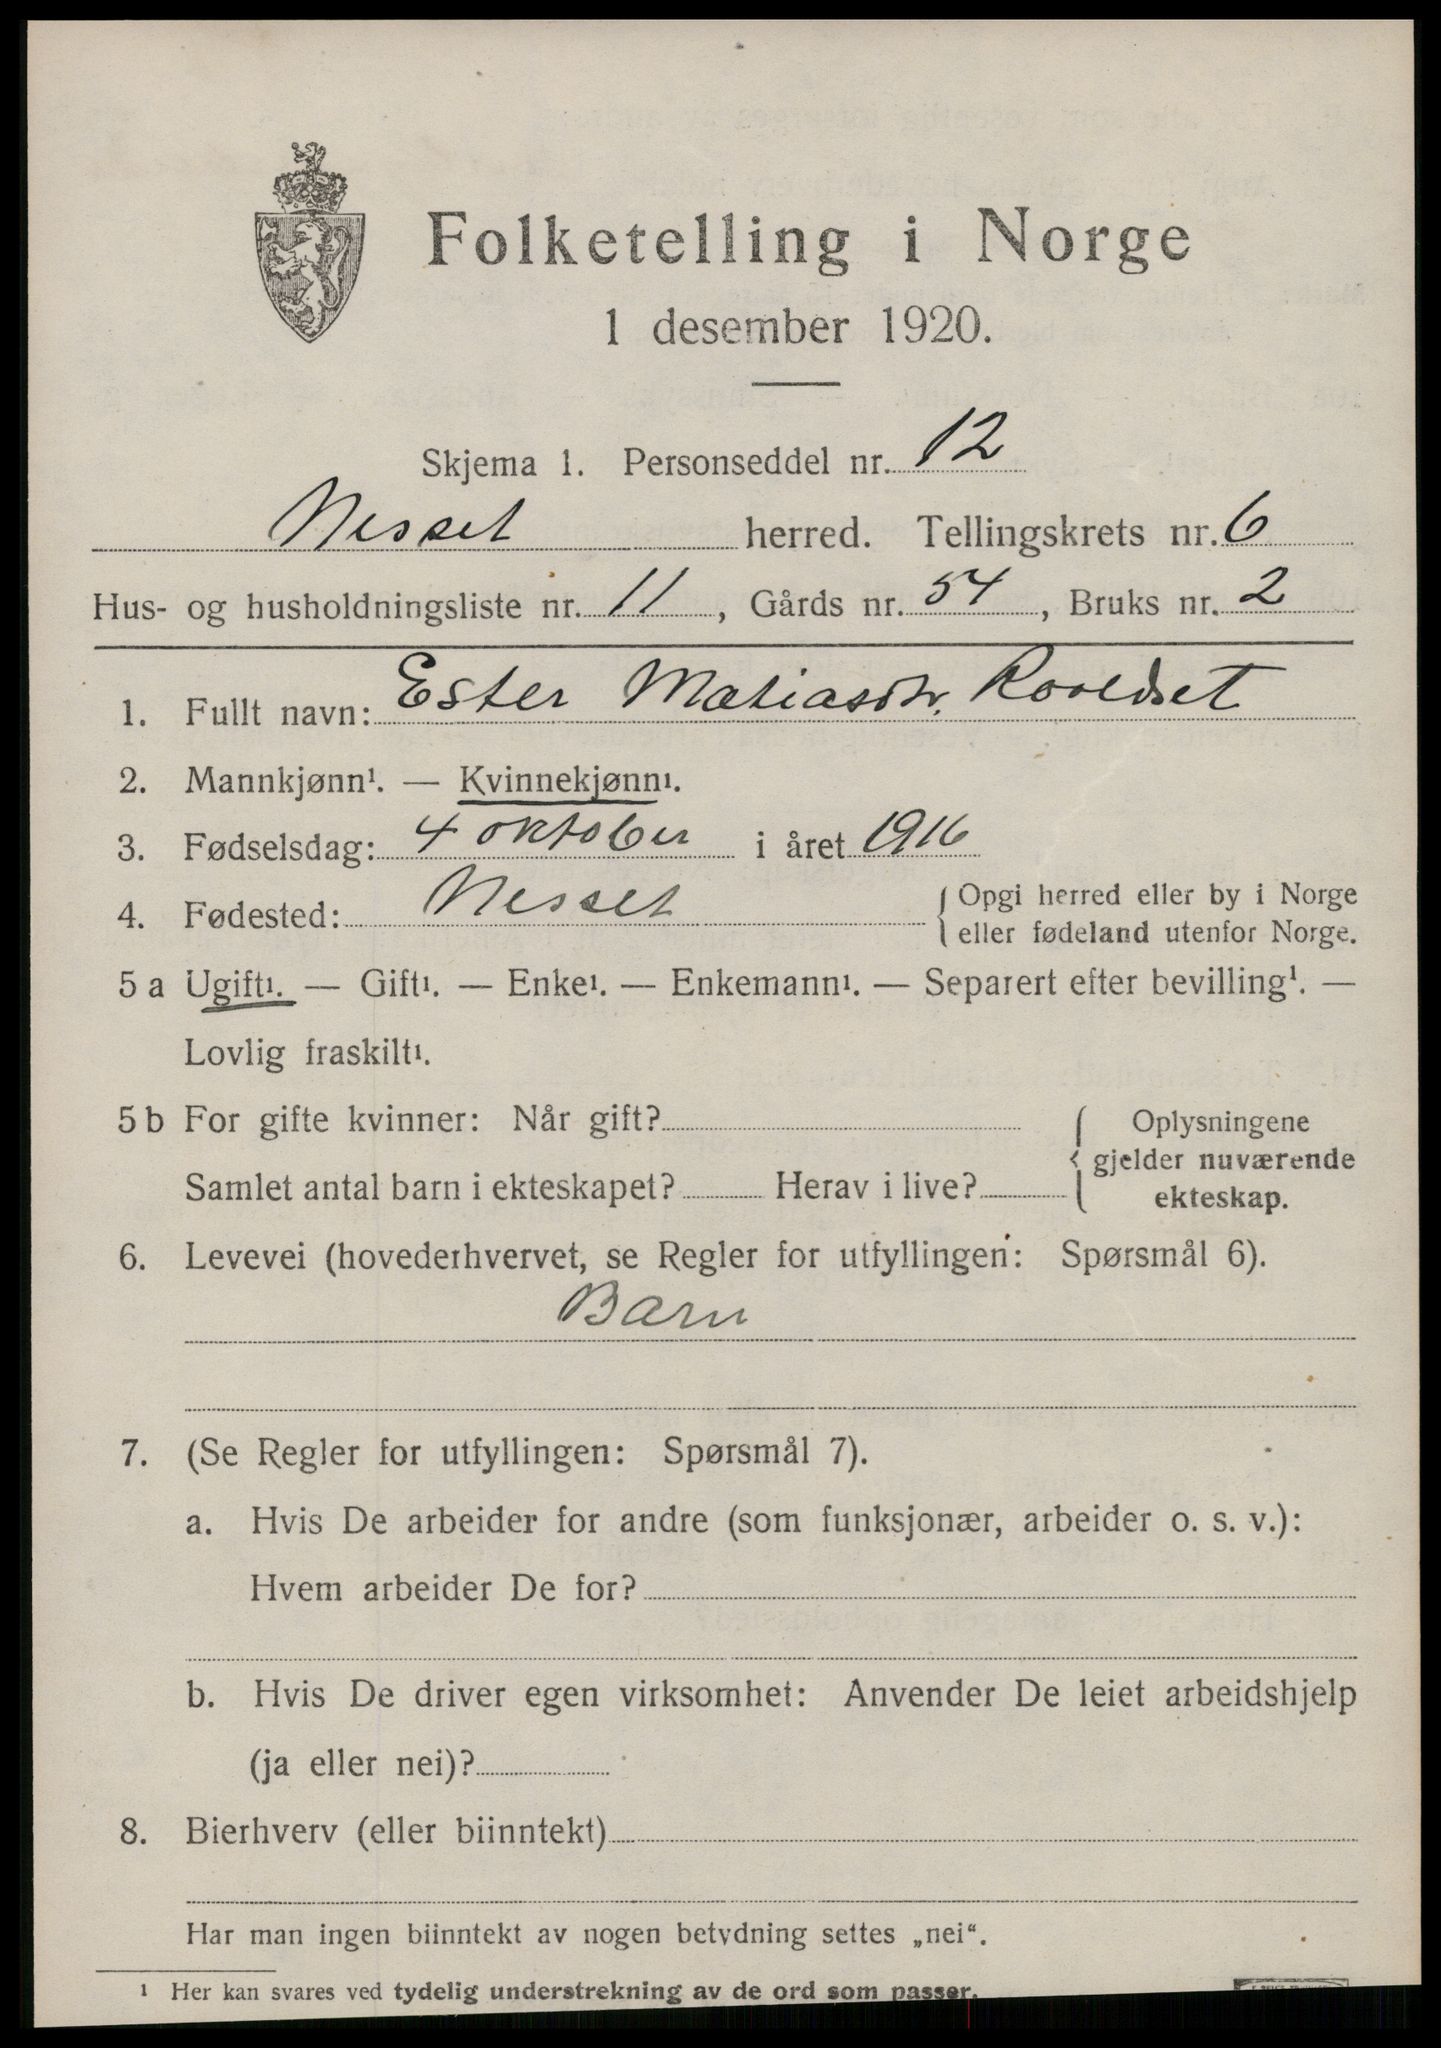 Folketelling i Norge
1 desember 1920.
Skjema 1. Personseddel nr. 12
Nesset herred. Tellingskrets nr. 6
Hus- og husholdningsliste nr. 11, Gårds nr. 54, Bruks nr. 2
1. Fullt navn: Ester Matiasdtr.
2. Mannkjønn¹. — Kvinnekjønn¹.
3. Fødselsdag: 4 oktober i året 1916
4. Fødested: Nesset { Opgi herred eller by i Norge
eller fødeland utenfor Norge.
5 a Ugift¹. — Gift¹. — Enke¹. — Enkemann¹. — Separert efter bevilling¹. —
Lovlig fraskilt¹.
5 b For gifte kvinner: Når gift?
Samlet antal barn i ekteskapet? Herav i live?
{ Oplysningene
gjelder nuværende
ekteskap.
6. Levevei (hovederhvervet, se Regler for utfyllingen: Spørsmål 6).
Barn
7. (Se Regler for utfyllingen: Spørsmål 7).
a. Hvis De arbeider for andre (som funksjonær, arbeider o. s. v.):
Hvem arbeider De for?
b. Hvis De driver egen virksomhet: Anvender De leiet arbeidshjelp
(ja eller nei)?
8. Bierhverv (eller biinntekt)
Har man ingen biinntekt av nogen betydning settes „nei“.
¹ Her kan svares ved tydelig understrekning av de ord som passer.